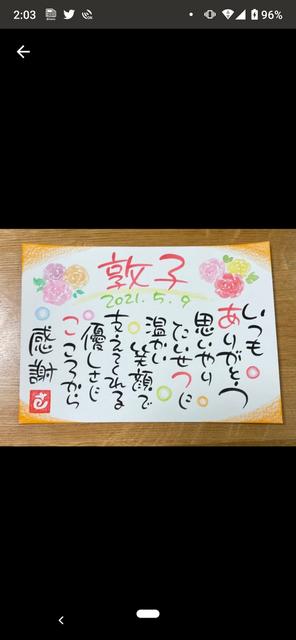 2:03
96%
敦子
2021.5.9
いつも
ありがとう
思いやり
たいせつに
温かい
笑顔で
支えてくれる
優しさに
こころから
感謝